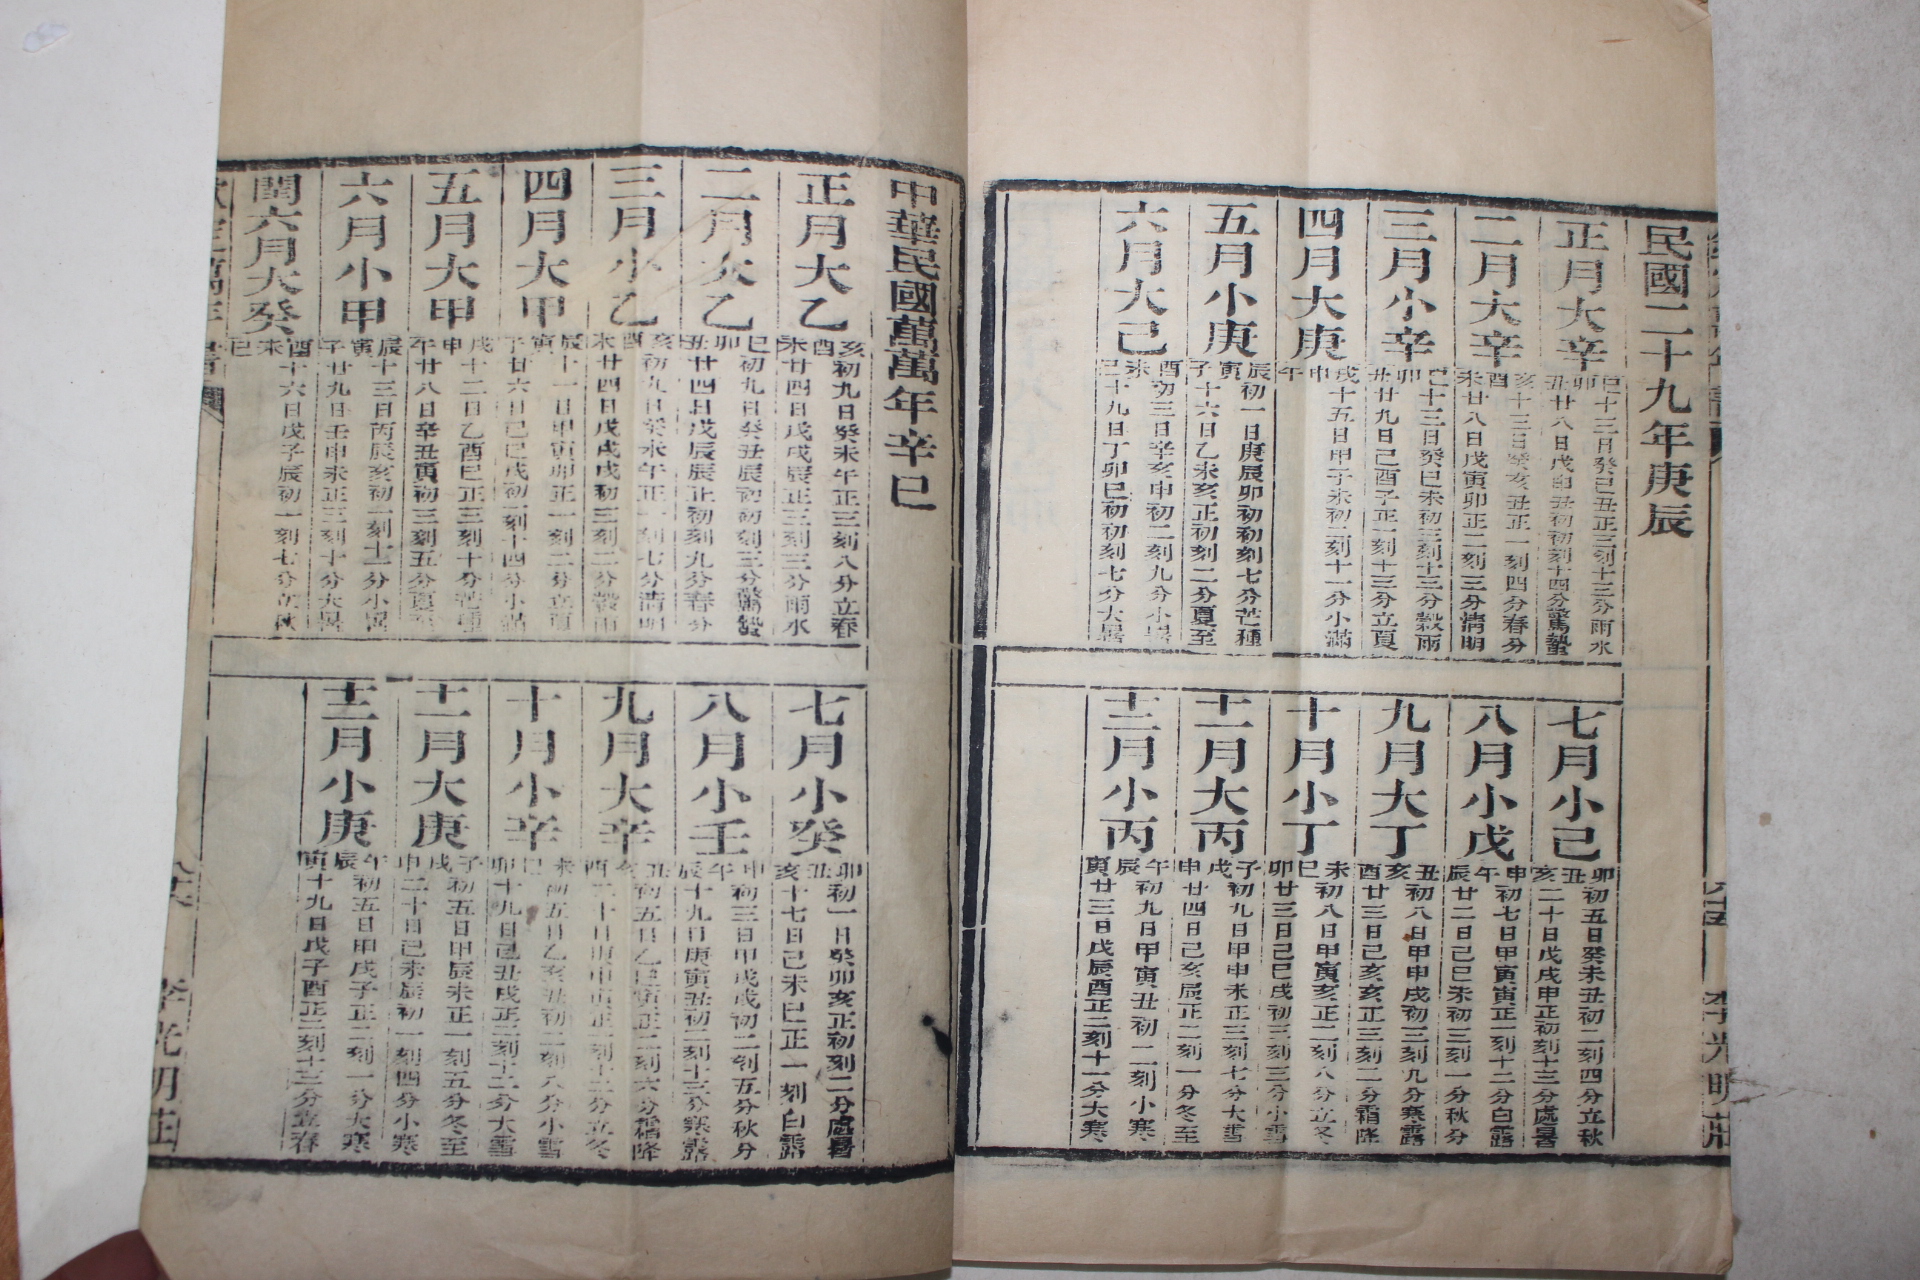 民國二十九年庚辰
正月大辛
巳卯丑
十三日癸巳丑正三刻十三分雨水
廿八日戊申丑初初刻十四分驚蟄
二月大辛
亥酉未
十三日癸亥丑正一刻四分春分
廿八日戊寅卯正二刻三分清明
三月小辛
巳卯丑
十三日癸巳未初三刻十三分穀雨
廿九日己酉子正一刻十三分立夏
四月大庚
戌申午
十五日甲子未初二刻十一分小滿
五月小庚
辰寅子
初一日庚辰卯初初刻七分芒種
十六日乙未亥正初刻二分夏至
六月大己
酉未巳
初三日辛亥申初二刻九分小暑
十九日丁卯巳初初刻七分大暑
七月小己
卯丑亥
初五日癸未丑初二刻四分立秋
二十日戊戌申正初刻十三分處暑
八月小戊
申午辰
初七日甲寅寅正一刻十二分白露
廿二日己巳未初三刻一分秋分
九月大丁
丑亥酉
初八日甲申戌初三刻九分寒露
廿三日己亥亥正三刻二分霜降
十月小丁
未巳卯
初八日甲寅亥正二刻八分立冬
廿三日己巳戌初三刻三分小雪
十一月大丙
子戌申
初九日甲申未正三刻七分大雪
廿四日己亥辰正二刻一分冬至
十二月小丙
午辰寅
初九日甲寅丑初二刻小寒
廿三日戊辰酉正二刻十一分大寒
李光明莊
中華民國萬萬年辛巳
正月大乙
亥酉未
初九日癸未午正三刻八分立春
廿四日戊戌辰正三刻三分雨水
二月大乙
巳卯丑
初九日癸丑辰初初刻三分驚蟄
廿四日戊辰辰正初刻九分春分
三月小乙
亥酉未
初九日癸未午正一刻七分清明
廿四日戊戌戌初三刻二分穀雨
四月大甲
辰寅子
十一日甲寅卯正一刻二分立夏
廿六日己巳戌初一刻十四分小滿
五月大甲
戌申午
十二日乙酉巳正三刻十分芒種
廿八日辛丑寅初三刻五分夏至
六月小甲
辰寅子
十三日丙辰亥初一刻十二分小暑
廿九日壬申未正三刻十分大暑
閏六月大癸
酉未巳
十六日戊子辰初一刻七分立秋
七月小癸
卯丑亥
初一日癸卯亥正初刻二分處暑
十七日己未巳正一刻白露
八月小壬
申午辰
初三日甲戌戌初二刻五分秋分
十九日庚寅丑初二刻十三分寒露
九月大辛
丑亥酉
初五日乙巳寅正二刻六分霜降
二十日庚申寅正一刻十二分立冬
十月小辛
未巳卯
初五日乙亥丑初二刻八分小雪
十九日己丑戌正二刻十二分大雪
十一月大庚
子戌申
初五日甲辰未正一刻五分冬至
二十日己未辰初一刻四分小寒
十二月小庚
午辰寅
初五日甲戌子正二刻一分大寒
十九日戊子酉正三刻十三分立春
李光明莊